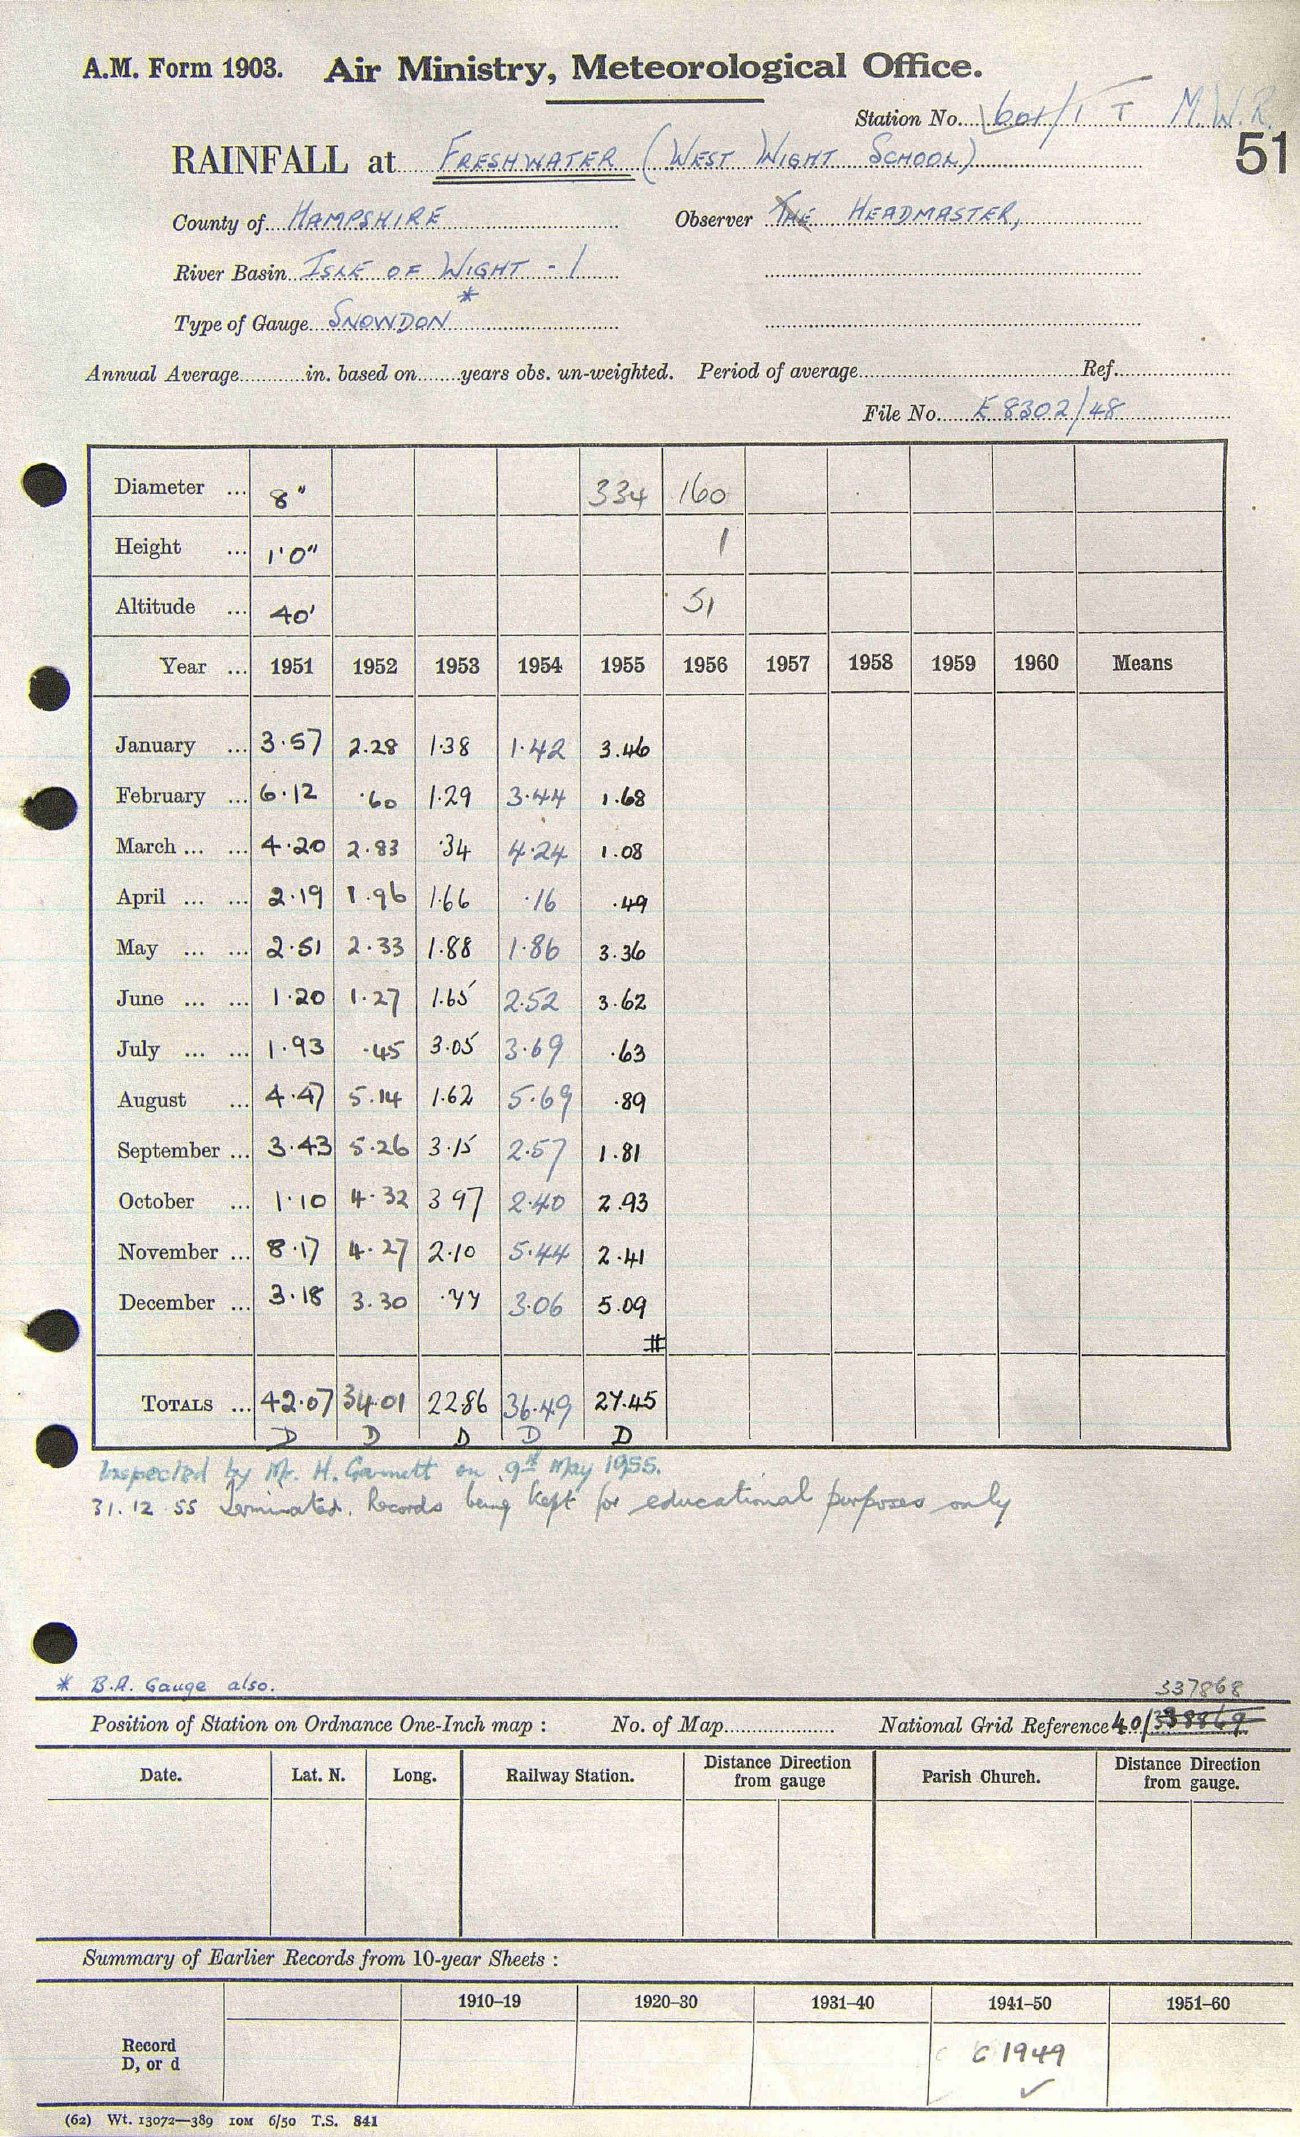 A.M. Form 1903. Air Ministry, Meteorological Office.
Station No. 601/1 T M.W.R.
51
RAINFALL at FRESHWATER (WEST WIGHT SCHOOL)
County of HAMPSHIRE Observer THE HEADMASTER,
River Basin ISLE OF WIGHT - 1
Type of Gauge SNOWDON *
Annual Average in. based on years obs. un-weighted. Period of average Ref.
File No. E 8302/48
Diameter ... 8" 334 160
Height ... 1'0" 1
Altitude ... 40' 51
Year ... 1951 1952 1953 1954 1955 1956 1957 1958 1959 1960 Means
January ... 3.57 2.28 1.38 1.42 3.46
February ... 6.12 .60 1.29 3.44 1.68
March ... ... 4.20 2.83 .34 4.24 1.08
April ... ... 2.19 1.96 1.66 .16 .49
May ... ... 2.51 2.33 1.88 1.86 3.36
June ... ... 1.20 1.27 1.65 2.52 3.62
July ... ... 1.93 .45 3.05 3.69 .63
August ... 4.47 5.14 1.62 5.69 .89
September ... 3.43 5.26 3.15 2.57 1.81
October ... 1.10 4.32 3 97 2.40 2.93
November ... 8.17 4.27 2.10 5.44 2.41
December ... 3.18 3.30 .77 3.06 5.09
#
TOTALS ... 42.07 34.01 22.86 36.49 27.45
D D D D D
Inspected by Mr. H. Garnett on 9th May 1955.
31.12 55 Terminated. Records being kept for educational purposes only
* B.R. Gauge also.
337868
Position of Station on Ordnance One-Inch map : No. of Map National Grid Reference 40/338869
Date. Lat. N. Long. Railway Station. Distance Direction from gauge Parish Church. Distance Direction from gauge.
Summary of Earlier Records from 10-year Sheets :
1910–19 1920–30 1931–40 1941–50 1951–60
Record
D, or d
C 1949
✓
(62) Wt. 13072—389 10M 6/50 T.S. 841